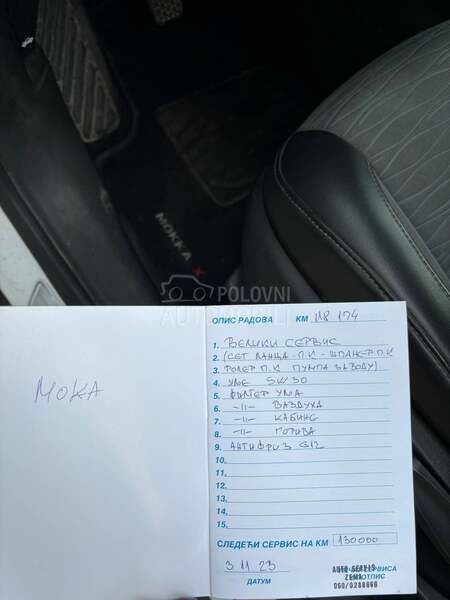 MOKKA X
POLOVNI
AUTOMOBILI
МОКА
ОПИС РАДОВА КМ 118 174
1. ВЕЛИКИ СЕРВИС
2. (СЕТ ЛАНЦА - П.К - ШПАНЕР П.К
3. РОЛЕР П.К ПУМПА ЗА ВОДУ)
4. УЉЕ 5W30
5. ФИЛТЕР УЉА
6. -||- ВАЗДУХА
7. -||- КАБИНЕ
8. -||- ГОРИВА
9. АНТИФРИЗ G12
10.
11.
12.
13.
14.
15.
СЛЕДЕЋИ СЕРВИС НА КМ 130000
3 11 23
ДАТУМ
AUTO SERVIS
ZEMA
060/0288868